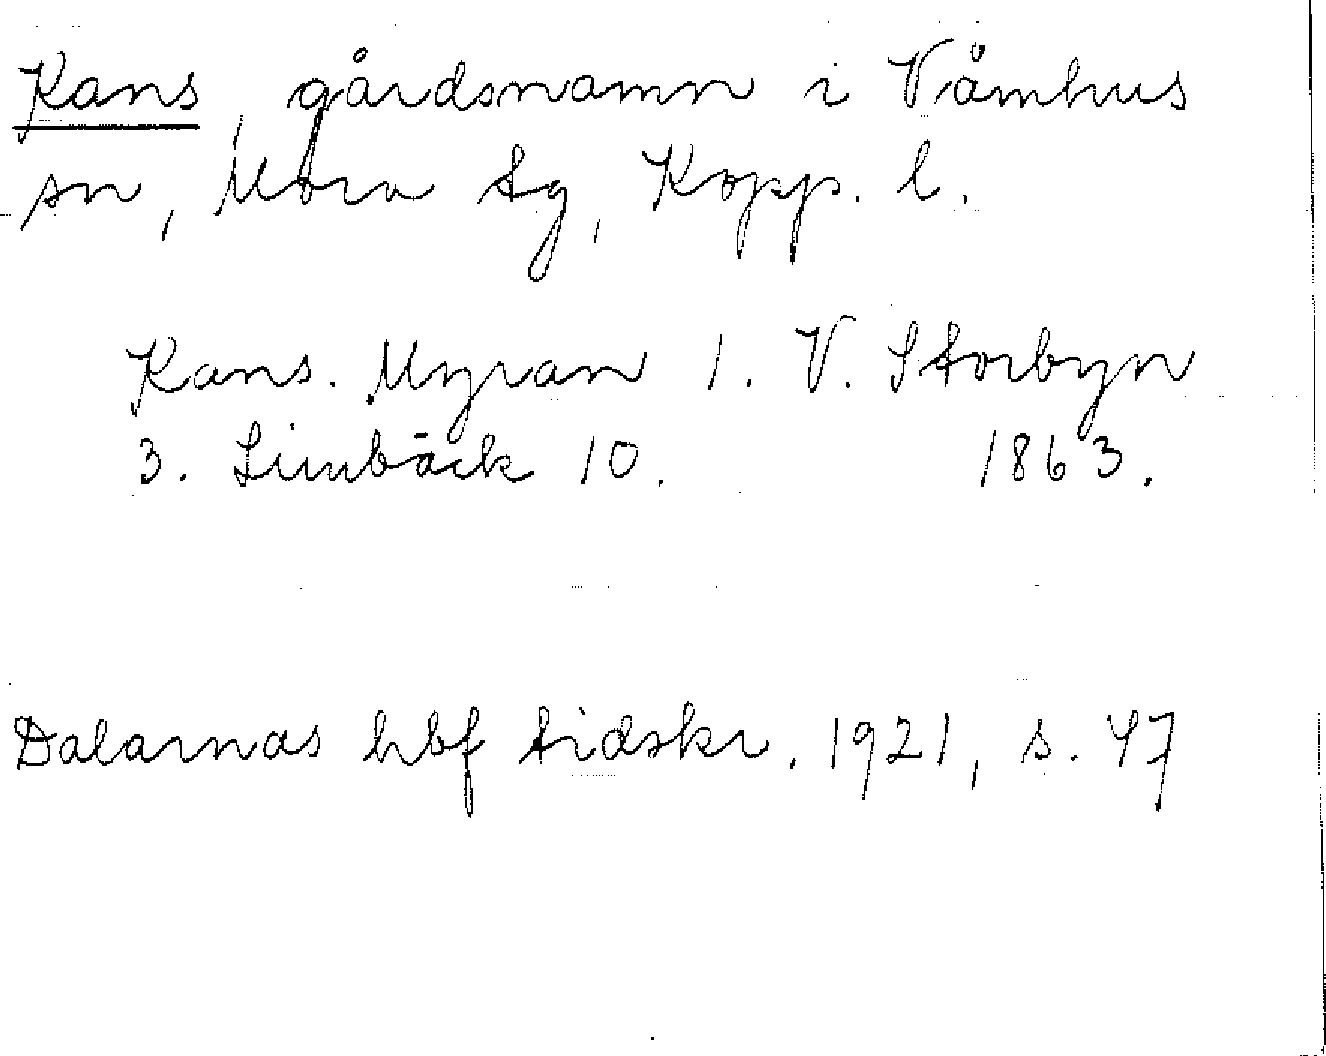 Kans, gårdsnamn i Våmhus
sn, Mora tg, Kopp. l.
Kans. Myran 1. V. Storbyn
3. Limbäck 10. 1863.
Dalarnas hbf tidskr. 1921, s. 47